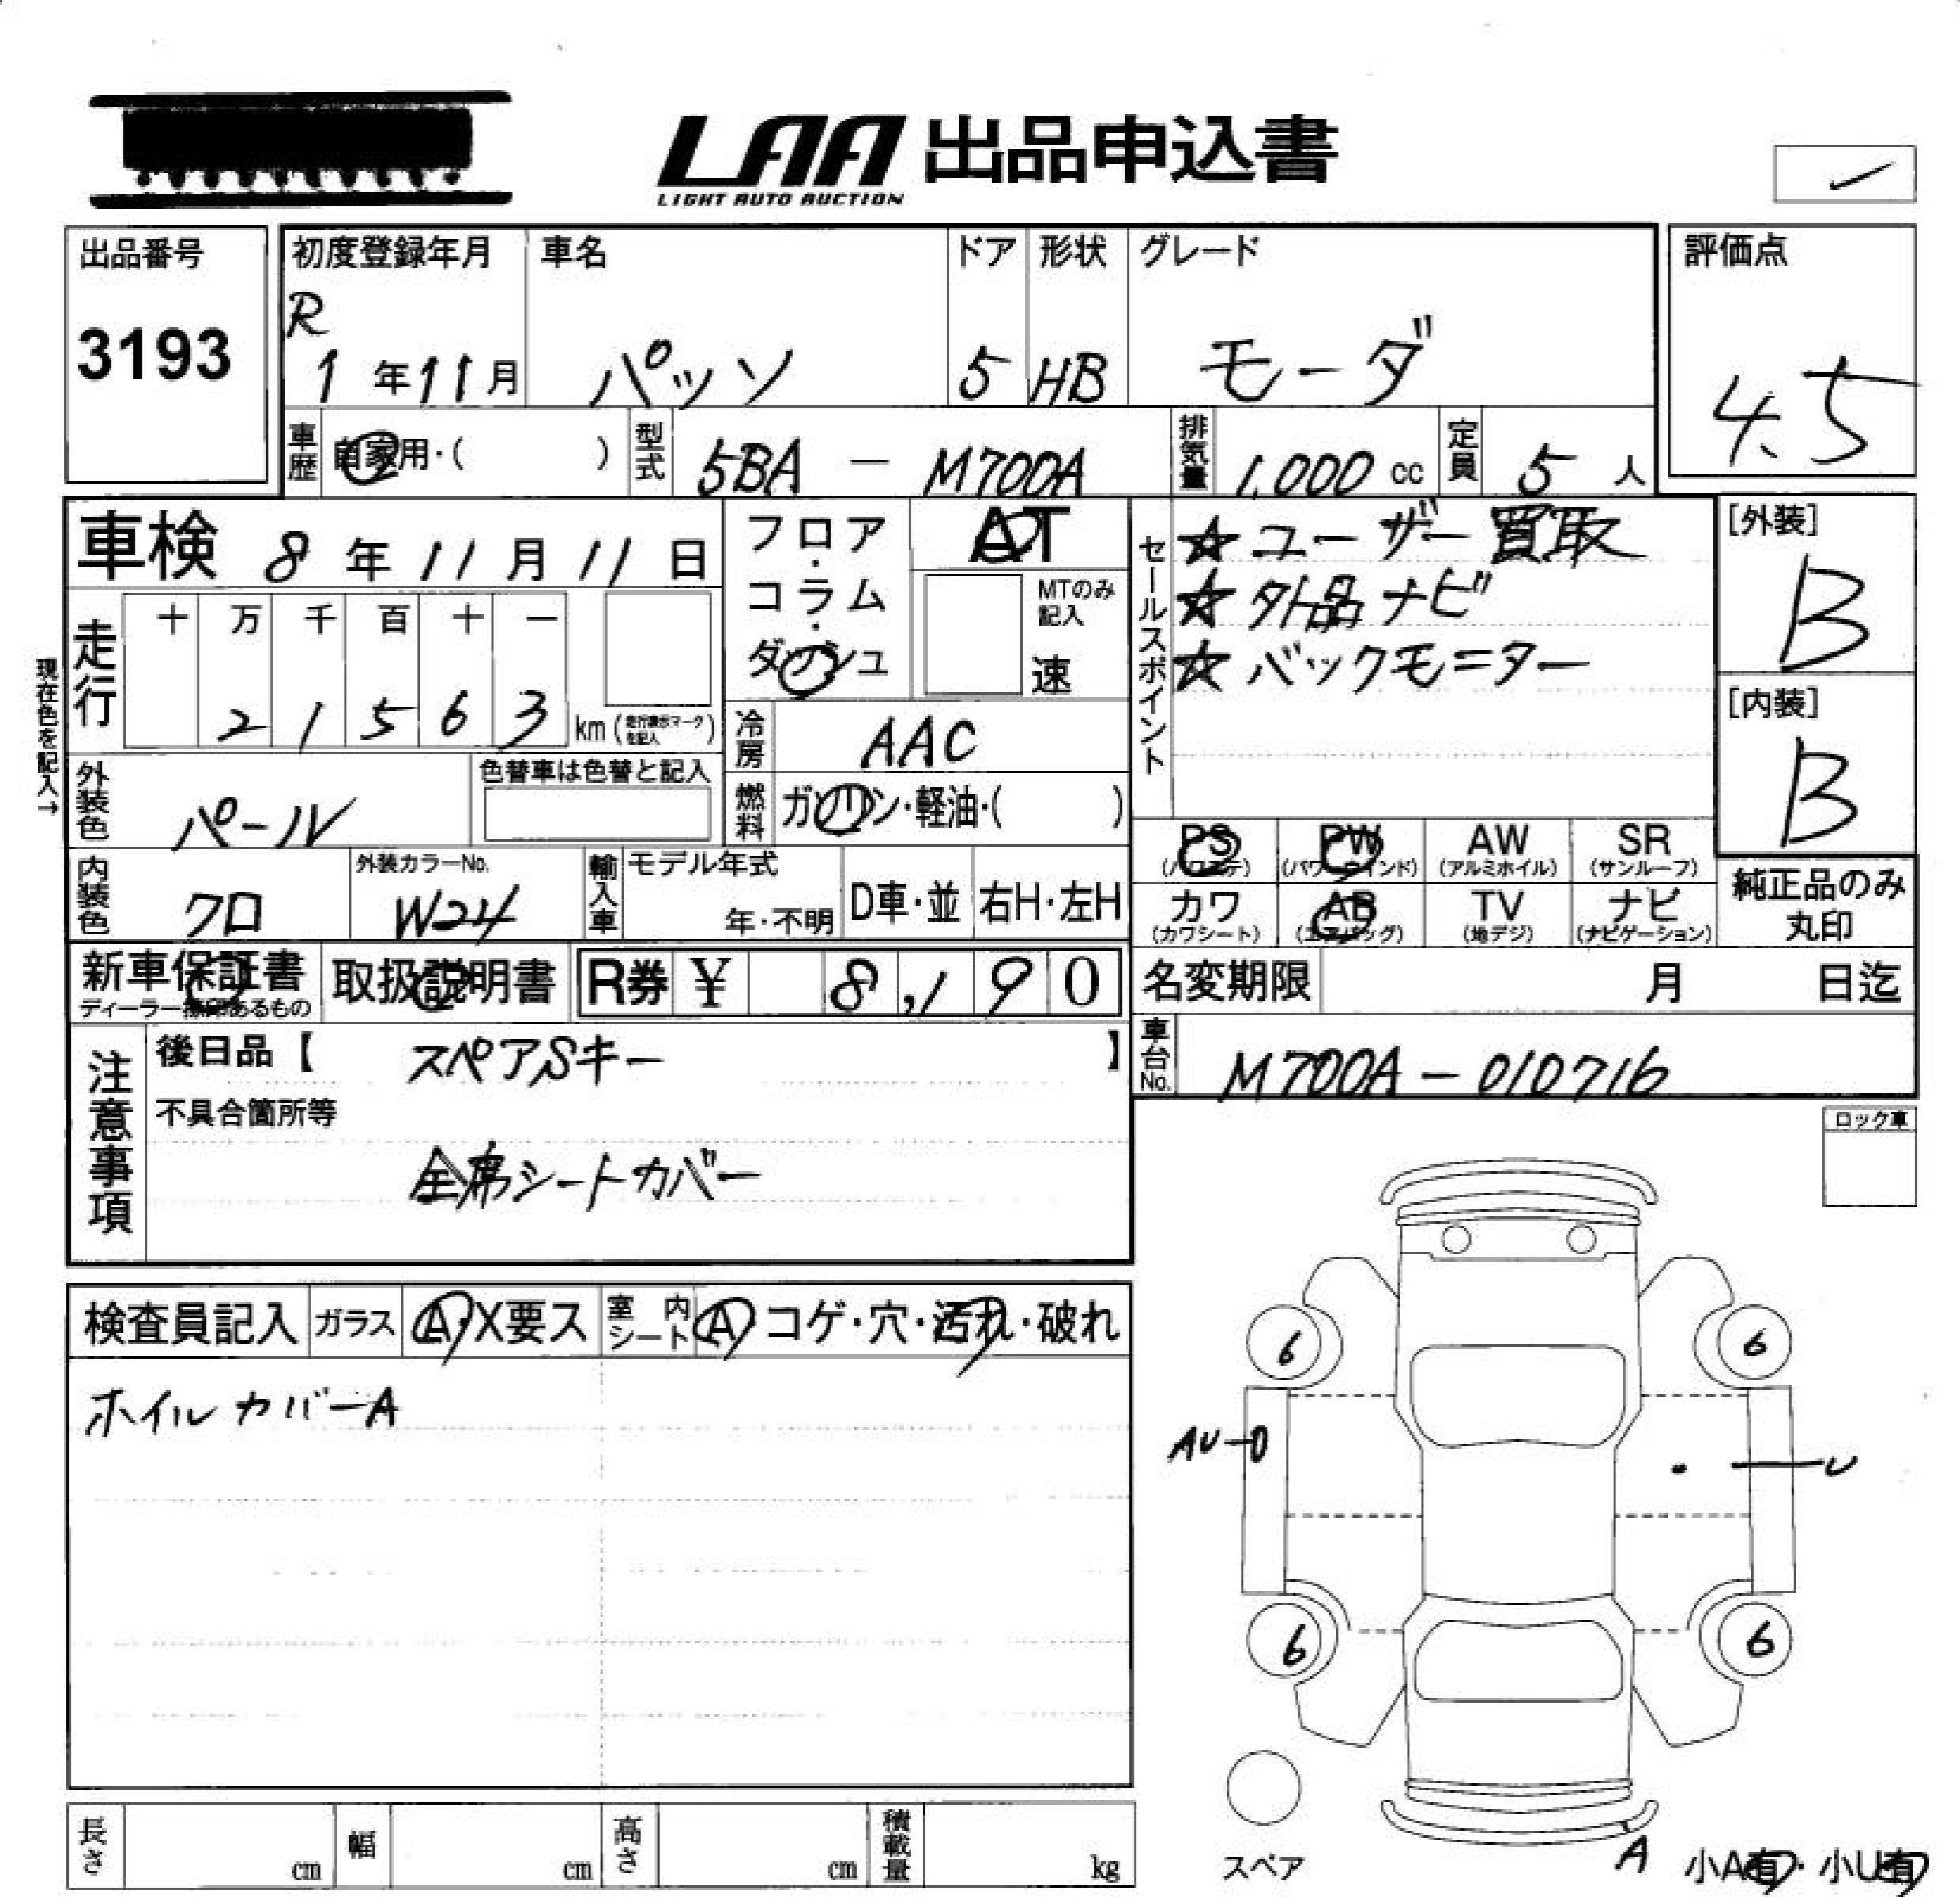 LAA 出品申込書
LIGHT AUTO AUCTION
出品番号
3193
初度登録年月
R
1 年 11 月
車名
パッソ
ドア
5
形状
HB
グレード
モーダ
評価点
4.5
車歴 自家用・( )
型式 5BA - M700A
排気量 1,000 cc
定員 5 人
車検 8 年 11 月 11 日
フロア・コラム・ダッシュ
AT
MTのみ記入
速
セールスポイント
☆ユーザー買取
☆外品ナビ
☆バックモニター
[外装]
B
[内装]
B
現在色を記入→
走行
十 万 千 百 十 一
2 1 5 6 3 km (走行表示マークを記入)
冷房 AAC
燃料 ガソリン・軽油・( )
外装色 パール
色替車は色替と記入
内装色 クロ
外装カラーNo.
W24
輸入車
モデル年式
年・不明
D車・並
右H・左H
PS (パワステ)
PW (パワーウインド)
AW (アルミホイル)
SR (サンルーフ)
カワ (カワシート)
AB (エアバッグ)
TV (地デジ)
ナビ (ナビゲーション)
純正品のみ丸印
新車保証書
ディーラー捺印あるもの
取扱説明書
R券 ¥ 8,190
名変期限 月 日迄
車台No. M700A-010716
注意事項
後日品【 スペアSキー 】
不具合箇所等
全席シートカバー
ロック車
検査員記入
ガラス A・X要ス
室内シート A コゲ・穴・汚れ・破れ
ホイルカバーA
6 6
AU
U
6 6
スペア
A
小A有・小U有
長さ cm
幅 cm
高さ cm
積載量 kg